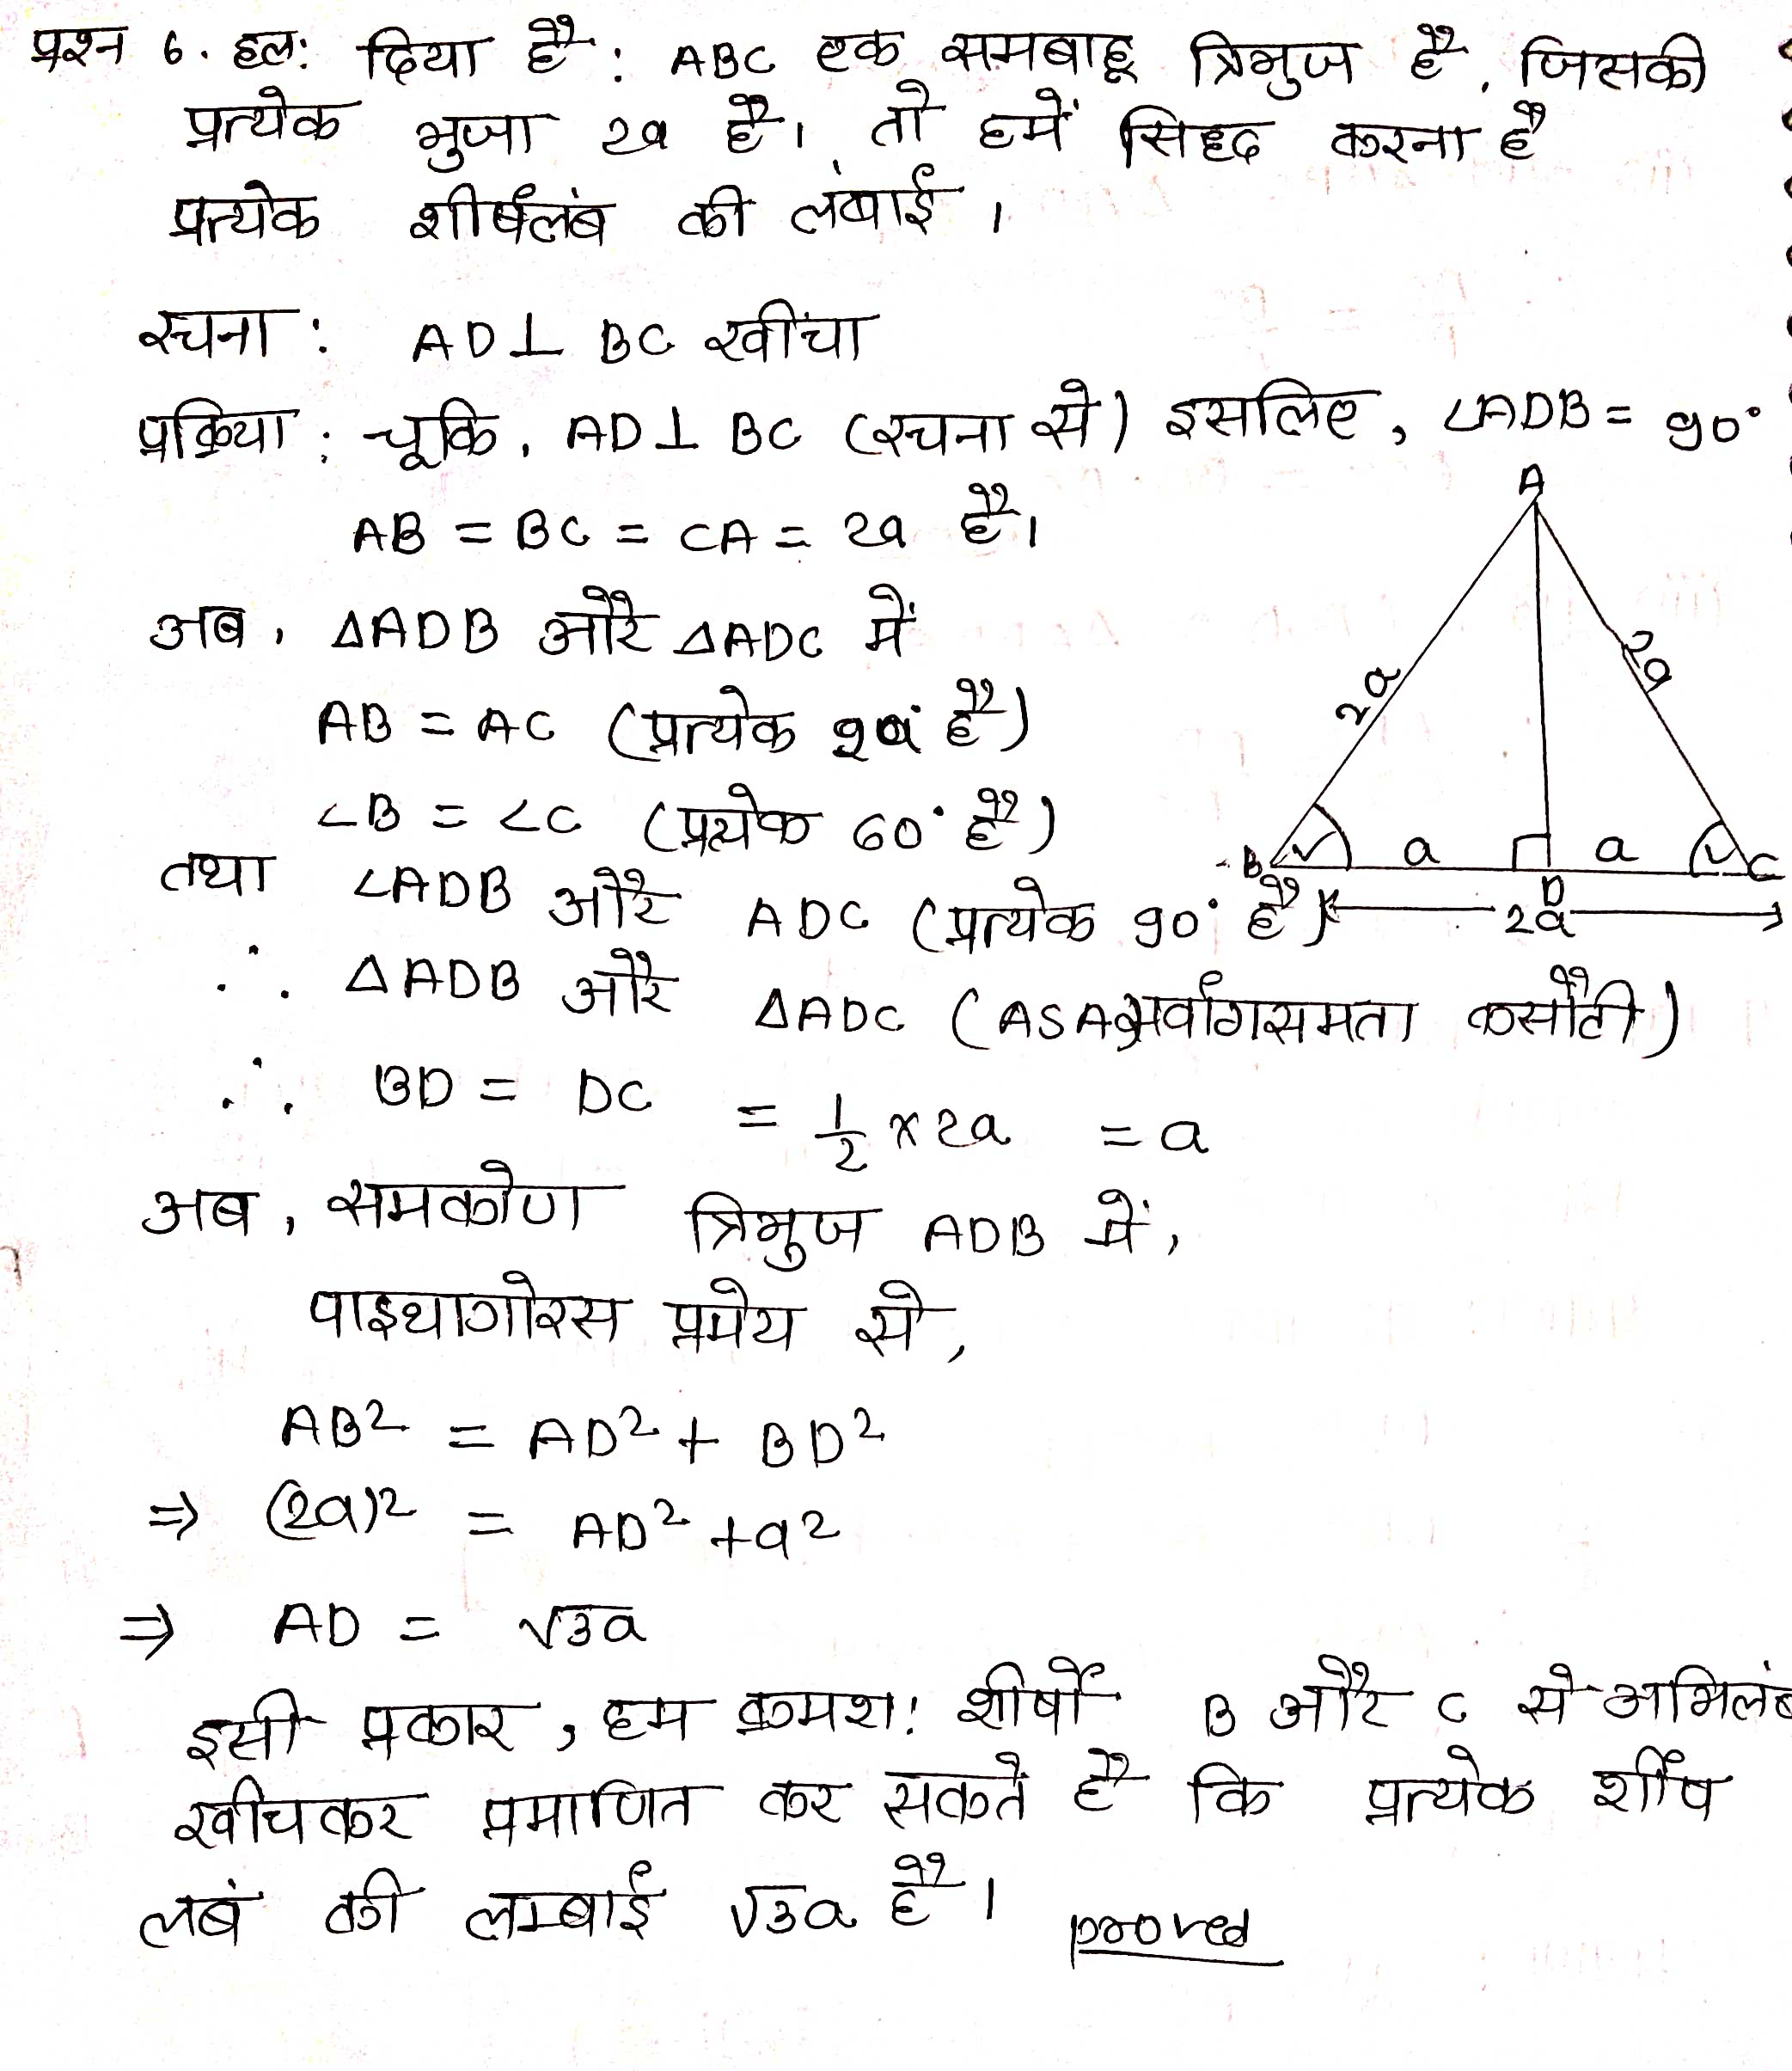 प्रश्न 6. हल: दिया है : ABC एक समबाहू त्रिभुज है, जिसकी
प्रत्येक भुजा 2a है। तो हमें सिद्ध करना है
प्रत्येक शीर्षलंब की लंबाई ।
रचना : AD⊥ BC खींचा
प्रक्रिया : चूकि, AD⊥ BC (रचना से) इसलिए, ∠ADB = 90°
AB = BC = CA = 2a है।
अब, ΔADB और ΔADC में
AB = AC (प्रत्येक 2a है)
∠B = ∠C (प्रत्येक 60° है)
तथा ∠ADB और ADC (प्रत्येक 90° है)
∴ ΔADB और ΔADC (ASA सर्वांगसमता कसौटी)
∴ BD = DC = 1/2 × 2a = a
अब, समकोण त्रिभुज ADB में,
पाइथागोरस प्रमेय से,
AB² = AD² + BD²
⇒ (2a)² = AD² + a²
⇒ AD = √3a
इसी प्रकार, हम क्रमश: शीर्षों B और C से अभिलंब
खीचकर प्रमाणित कर सकते है कि प्रत्येक र्शीष
लबं की लम्बाई √3a है। proved
A
2a
2a
B a a C
D
2a